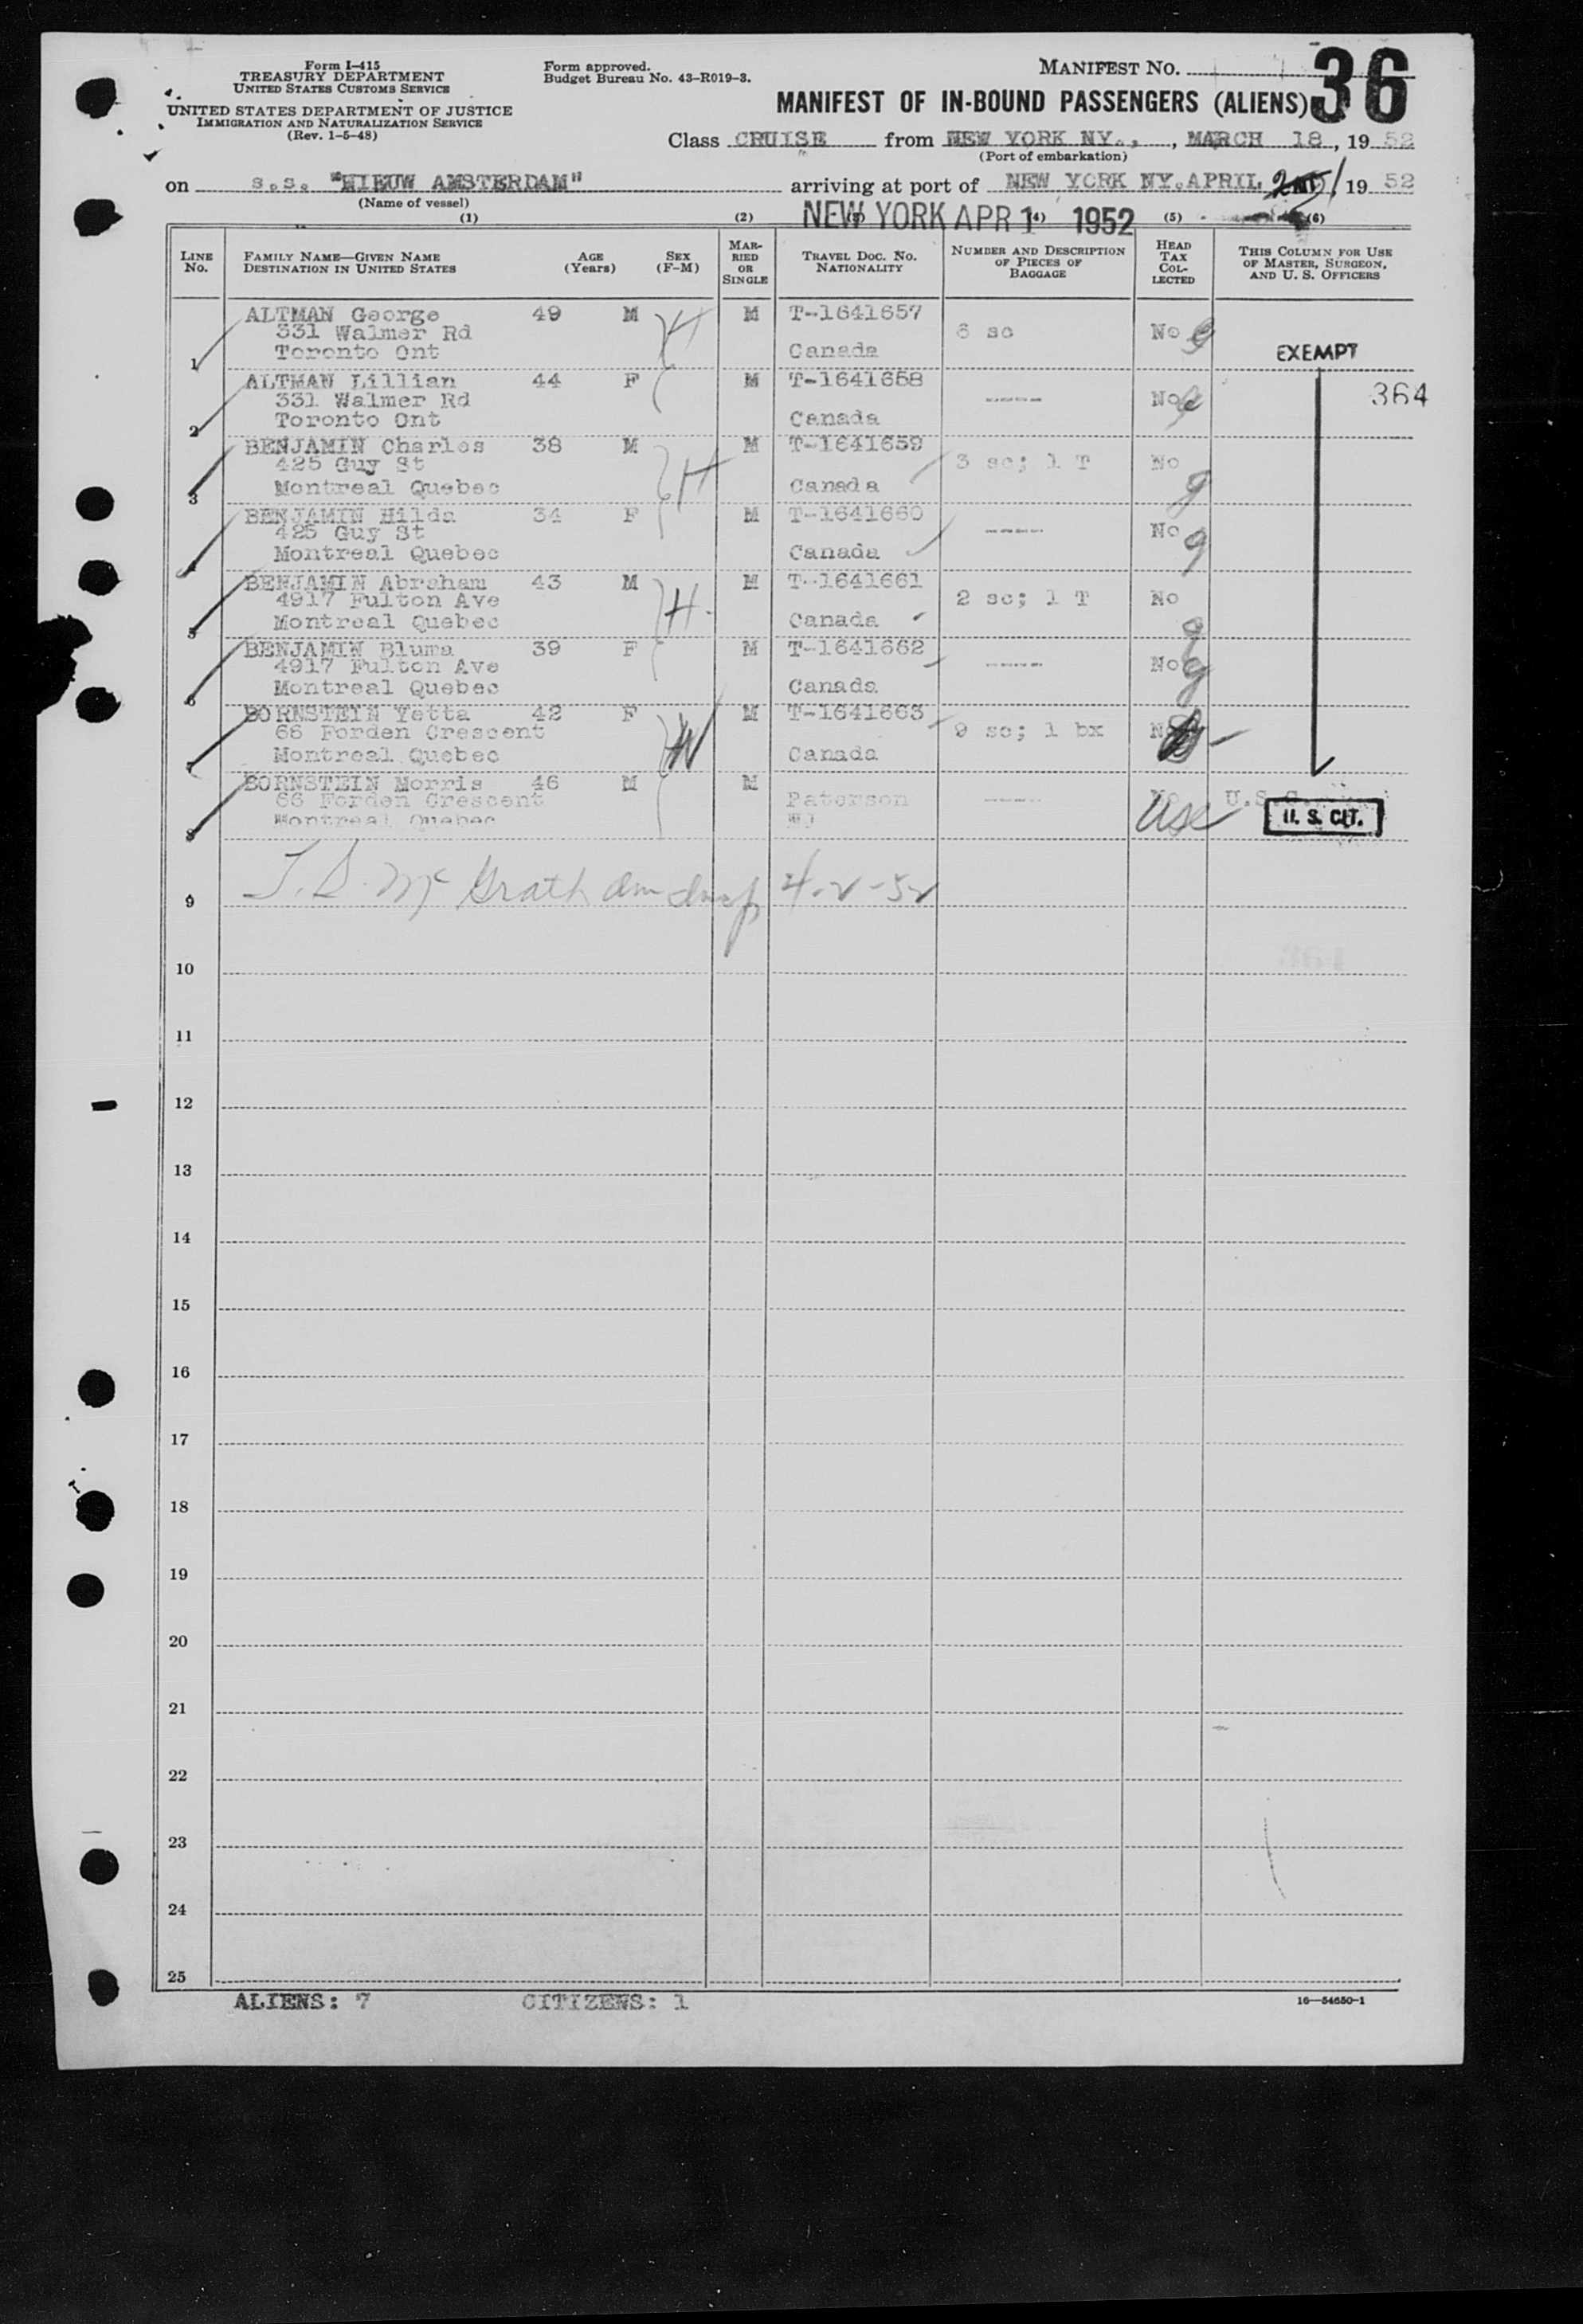 Form I-415
TREASURY DEPARTMENT
UNITED STATES CUSTOMS SERVICE
UNITED STATES DEPARTMENT OF JUSTICE
IMMIGRATION AND NATURALIZATION SERVICE
(Rev. 1-5-48)
Form approved.
Budget Bureau No. 43-R019-3.
MANIFEST NO. 36
MANIFEST OF IN-BOUND PASSENGERS (ALIENS)
Class CRUISE from NEW YORK NY., MARCH 18, 19 52
(Port of embarkation)
on s.s. "NIEUW AMSTERDAM" arriving at port of NEW YORK NY. APRIL 1, 19 52
(Name of vessel)
NEW YORK APR 1 1952
(1) (2) (3) (4) (5) (6)
LINE NO. FAMILY NAME—GIVEN NAME DESTINATION IN UNITED STATES AGE (Years) SEX (F-M) MARRIED OR SINGLE TRAVEL DOC. NO. NATIONALITY NUMBER AND DESCRIPTION OF PIECES OF BAGGAGE HEAD TAX COLLECTED THIS COLUMN FOR USE OF MASTER, SURGEON, AND U. S. OFFICERS
ALTMAN George 49 M M T-1641657
331 Walmer Rd 6 sc No
1 Toronto Ont Canada EXEMPT
ALTMAN Lillian 44 F M T-1641658
331 Walmer Rd ----- No 364
2 Toronto Ont Canada
BENJAMIN Charles 38 M M T-1641659
425 Guy St 3 sc; 1 T No
3 Montreal Quebec Canada
BENJAMIN Hilda 34 F M T-1641660
425 Guy St ----- No
4 Montreal Quebec Canada
BENJAMIN Abraham 43 M M T-1641661
4917 Fulton Ave 2 sc; 1 T No
5 Montreal Quebec Canada
BENJAMIN Bluma 39 F M T-1641662
4917 Fulton Ave ----- No
6 Montreal Quebec Canada
BORNSTEIN Yetta 42 F M T-1641663
66 Forden Crescent 9 sc; 1 bx No
7 Montreal Quebec Canada
BORNSTEIN Morris 46 M M
66 Forden Crescent Paterson ----- No U.S.C.
8 Montreal Quebec NJ USC U. S. CIT.
9 McGrath 4-2-52
10
11
12
13
14
15
16
17
18
19
20
21
22
23
24
25
ALIENS: 7 CITIZENS: 1
16—54650-1